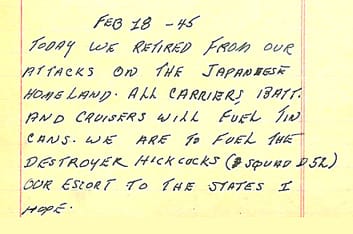 FEB 18 -45
TODAY WE RETIRED FROM OUR
ATTACKS ON THE JAPANEESE
HOMELAND. ALL CARRIERS, BATT.
AND CRUISERS WILL FUEL TIN
CANS. WE ARE TO FUEL THE
DESTROYER HICKCOCKS (SQUAD D52)
OUR ESCORT TO THE STATES I
HOPE.